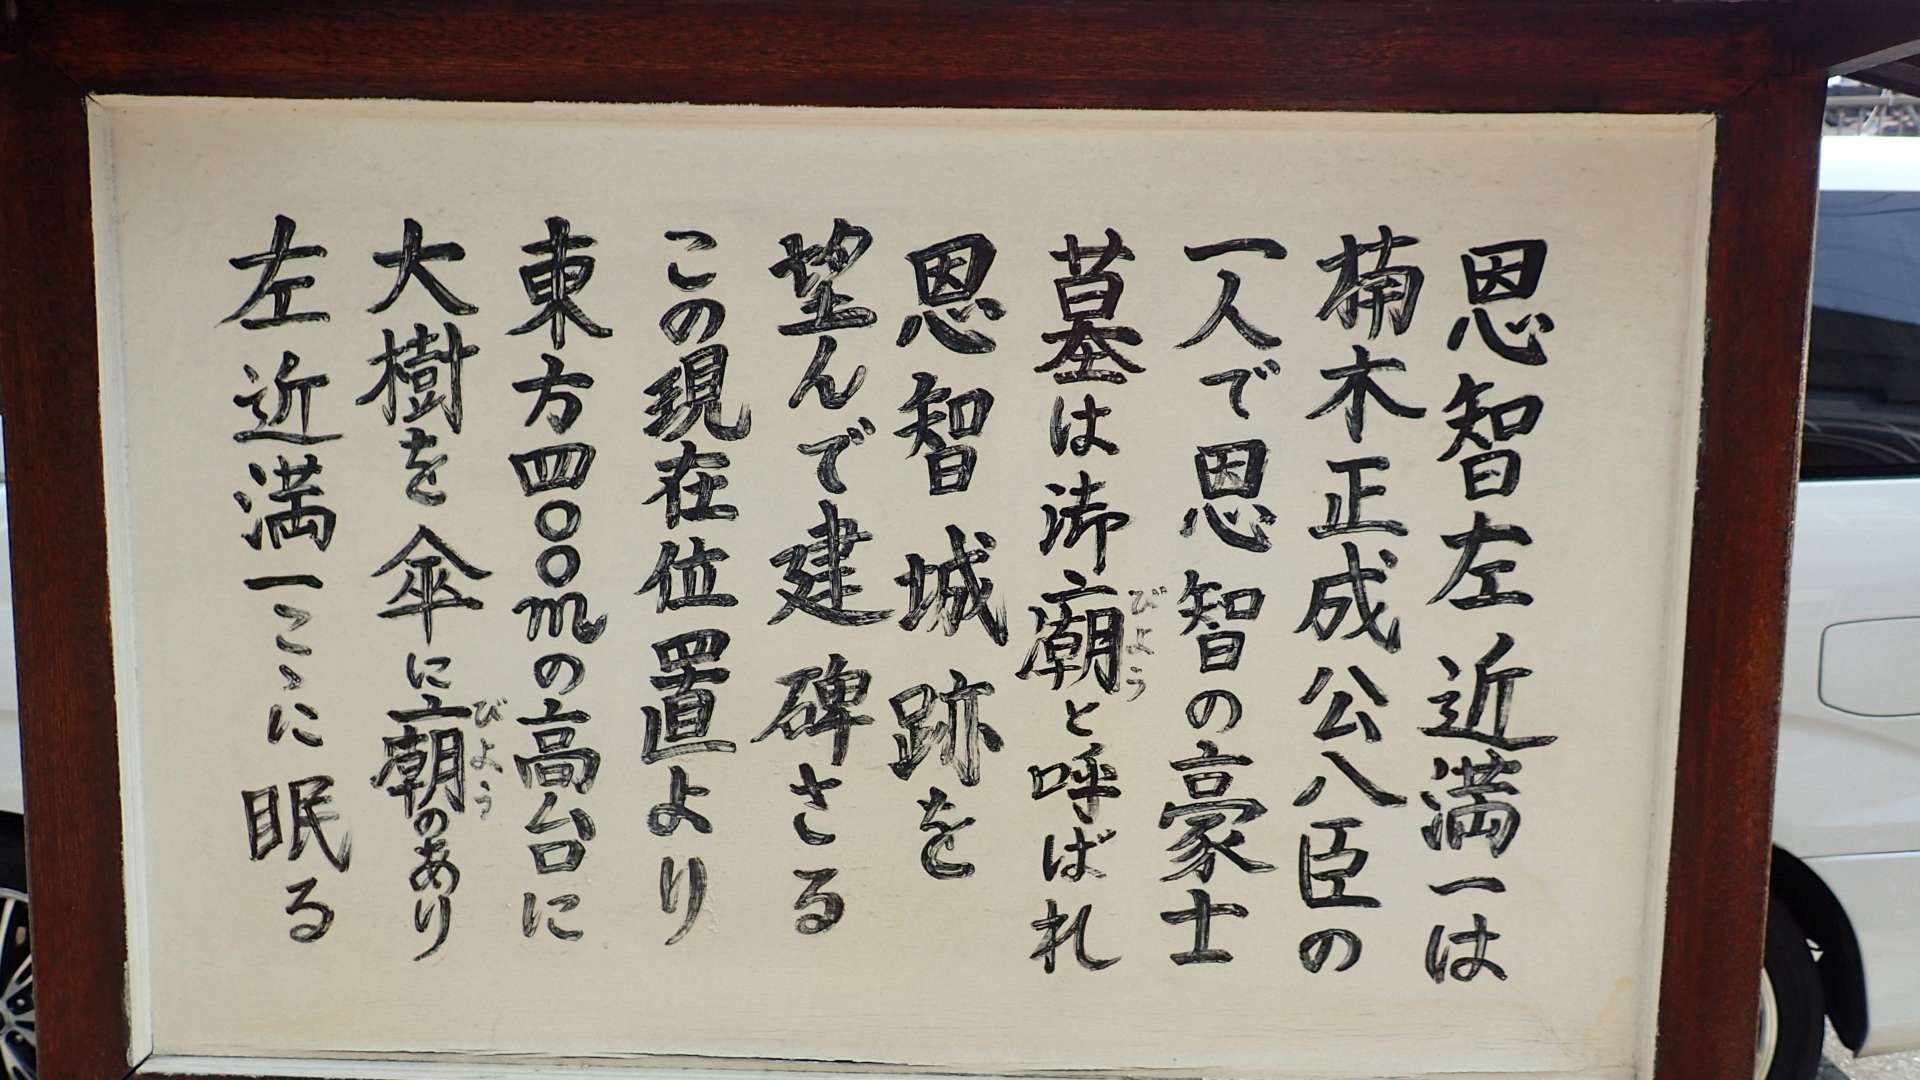 恩智左近満一は
楠木正成公八臣の
一人で恩智の豪士
墓は御廟と呼ばれ
びょう
恩智城跡を
望んで建碑さる
この現在位置より
東方四〇〇mの高台に
大樹を傘に廟のあり
びょう
左近満一こゝに眠る